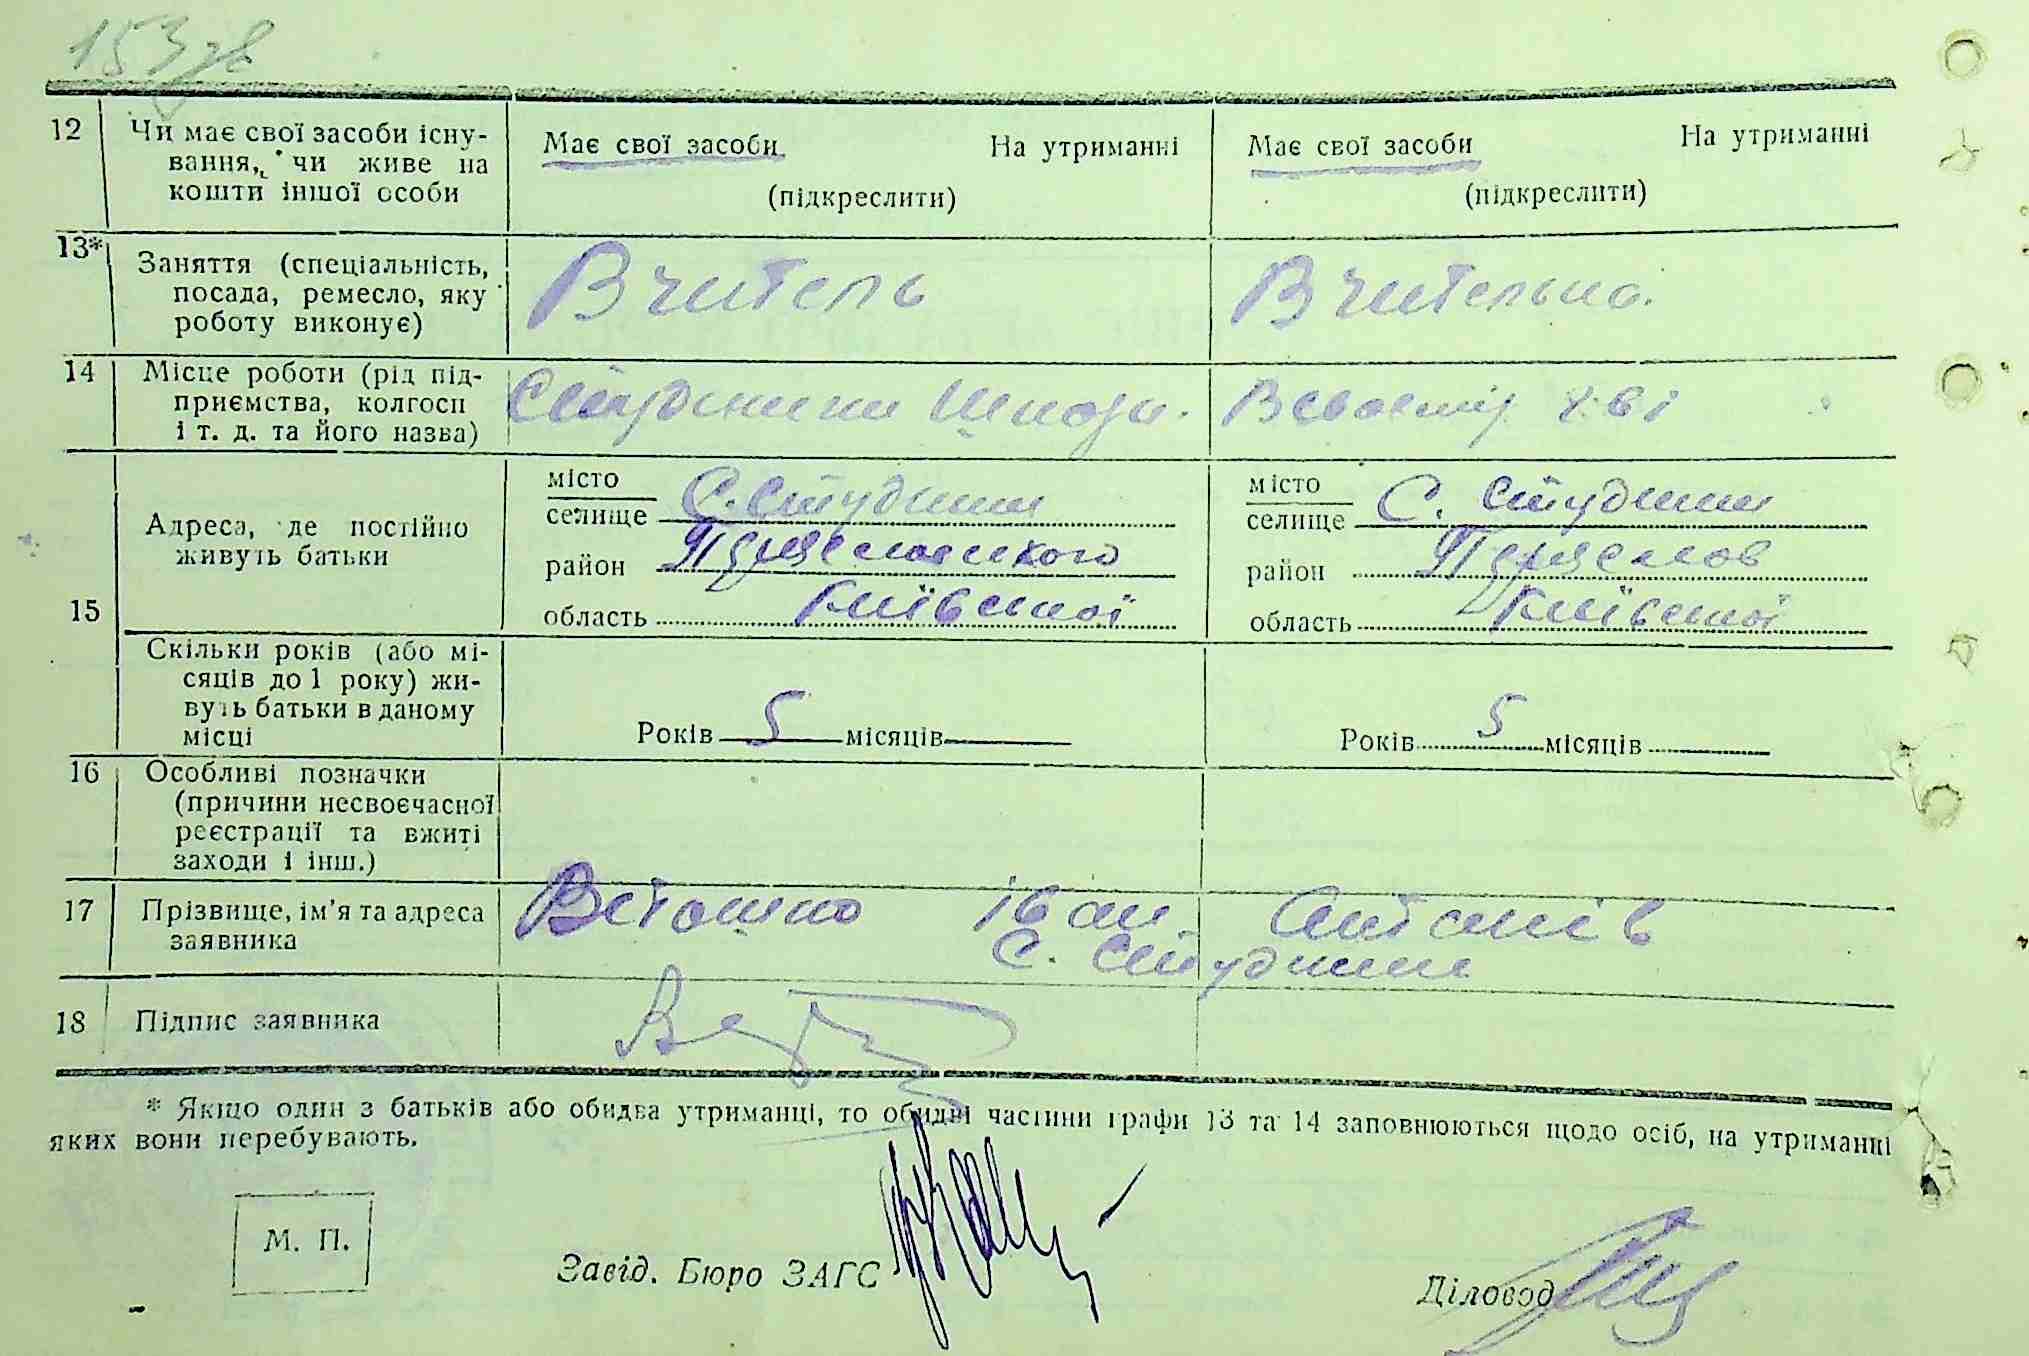 153 зв
12 Чи має свої засоби існу-
вання, чи живе на
кошти іншої особи
Має свої засоби На утриманні
(підкреслити)
Має свої засоби На утриманні
(підкреслити)
13* Заняття (спеціальність,
посада, ремесло, яку
роботу виконує)
Вчитель
Вчителька.
14 Місце роботи (рід під-
приємства, колгосп
і т. д. та його назва)
Школа.
15
Адреса, де постійно
живуть батьки
місто
селище С. Студники
район Переяславського
область Київської
місто
селище С. Студники
район Переяслов
область Київської
Скільки років (або мі-
сяців до 1 року) жи-
вуть батьки в даному
місці
Років 5 місяців
Років 5 місяців
16 Особливі позначки
(причини несвоєчасної
реєстрації та вжиті
заходи і інш.)
17 Прізвище, ім'я та адреса
заявника
Веташко Іван Антонів
С. Студники
18 Підпис заявника
* Якщо один з батьків або обидва утриманці, то обидві частини графи 13 та 14 заповнюються щодо осіб, на утриманні
яких вони перебувають.
М. П.
Завід. Бюро ЗАГС
Діловод